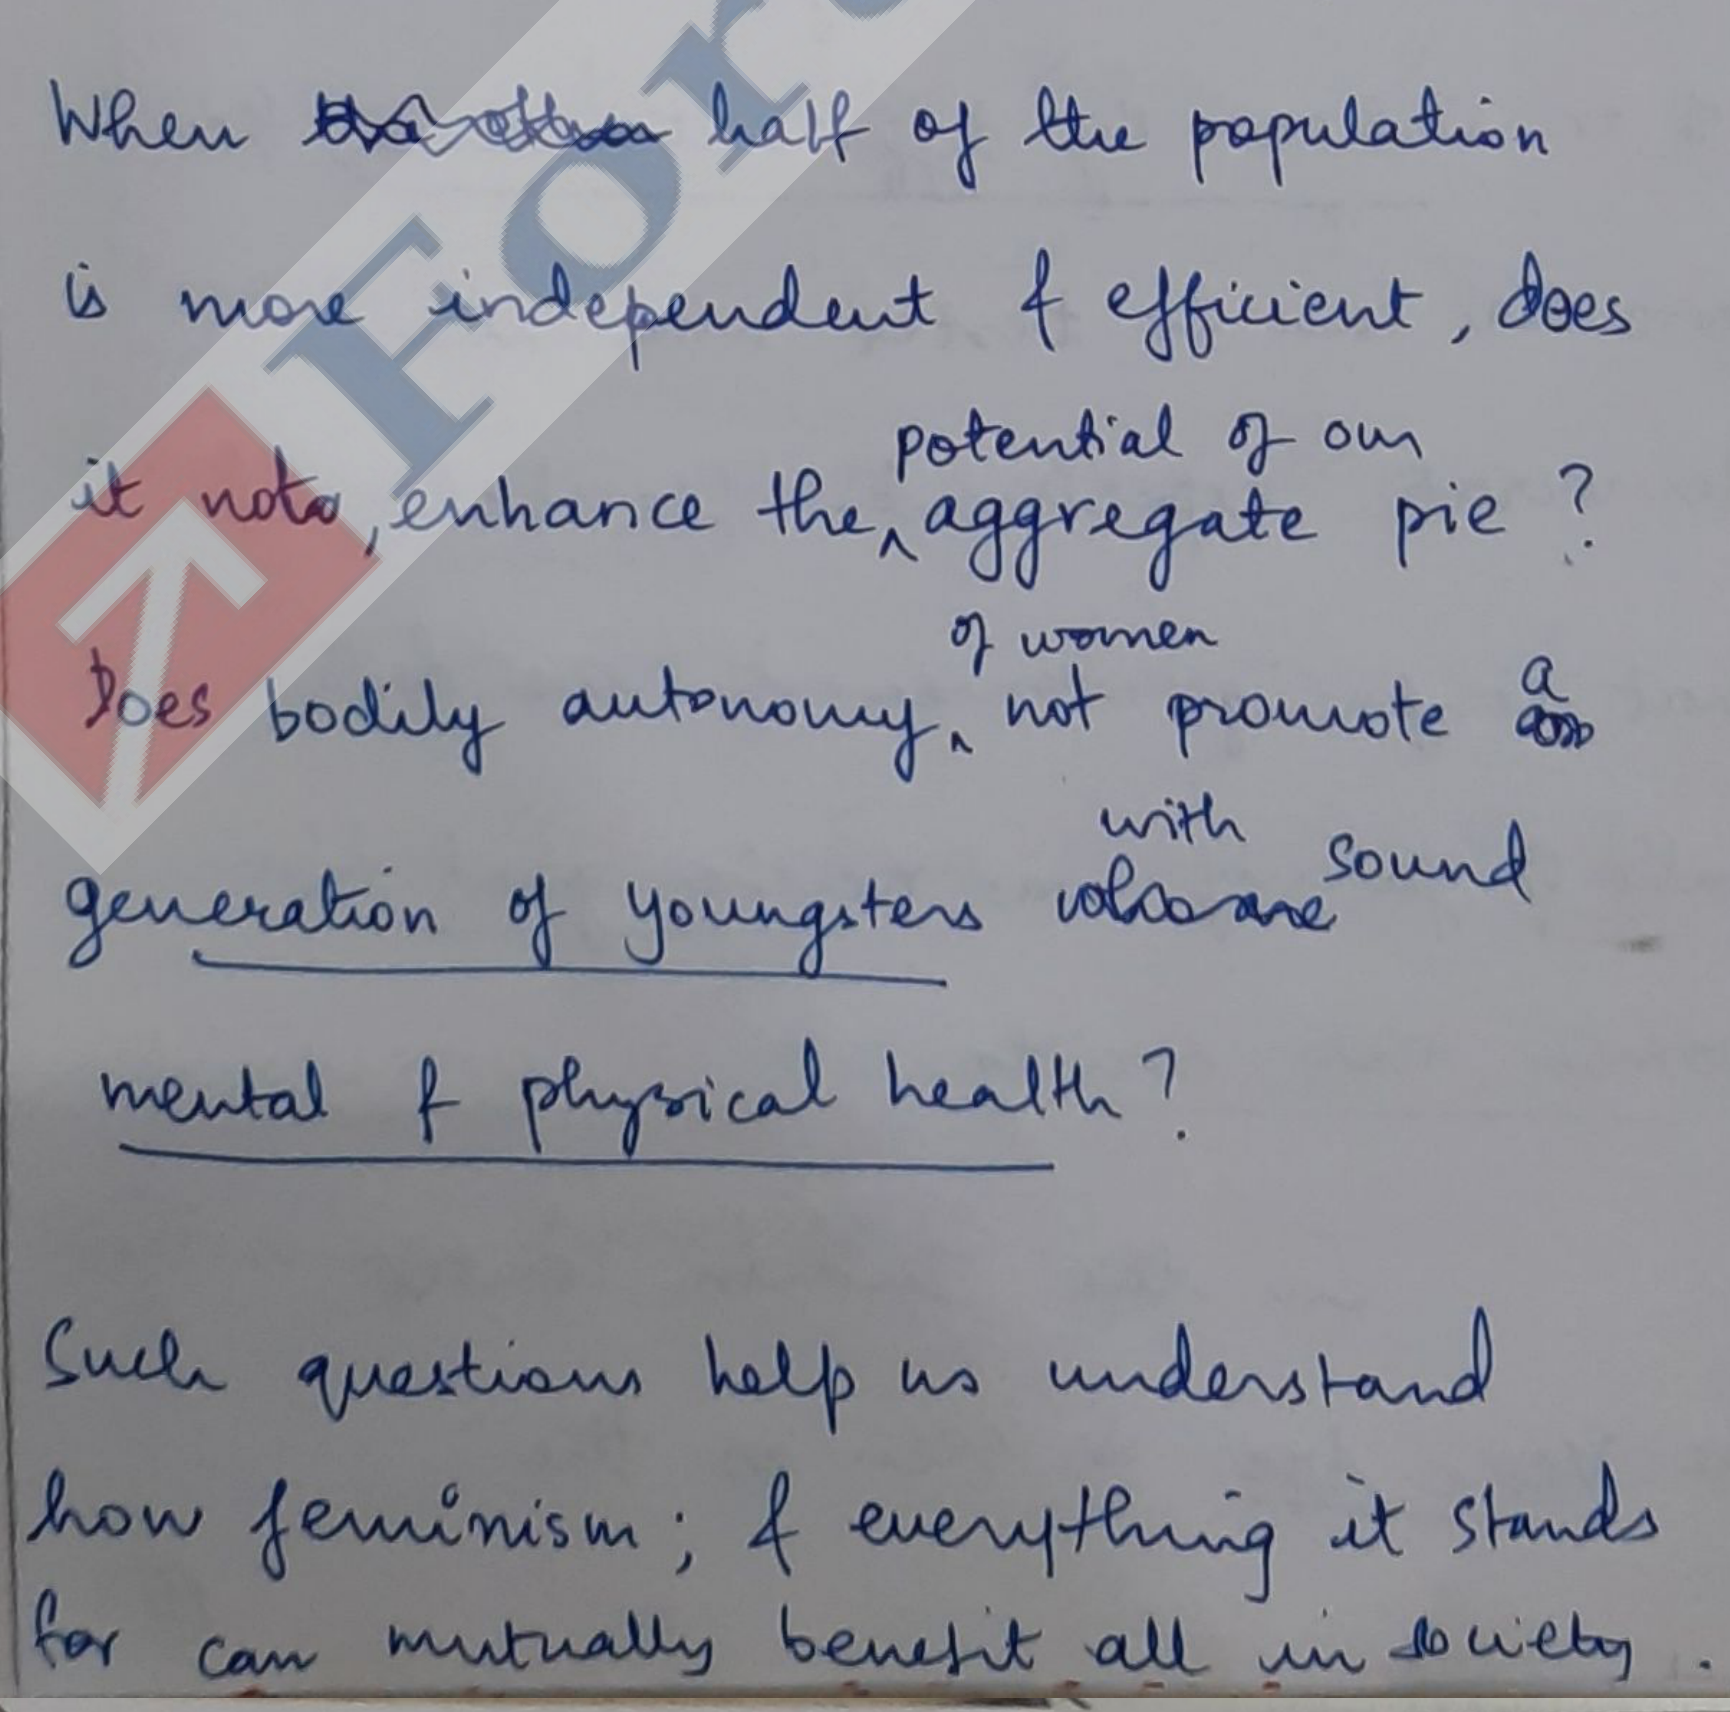 When half of the population
is more independent & efficient, does
it not, enhance the potential of our aggregate pie ?
Does bodily autonomy of women not promote a
generation of youngsters with sound
mental & physical health ?
Such questions help us understand
how feminism ; & everything it stands
for can mutually benefit all in society .
For